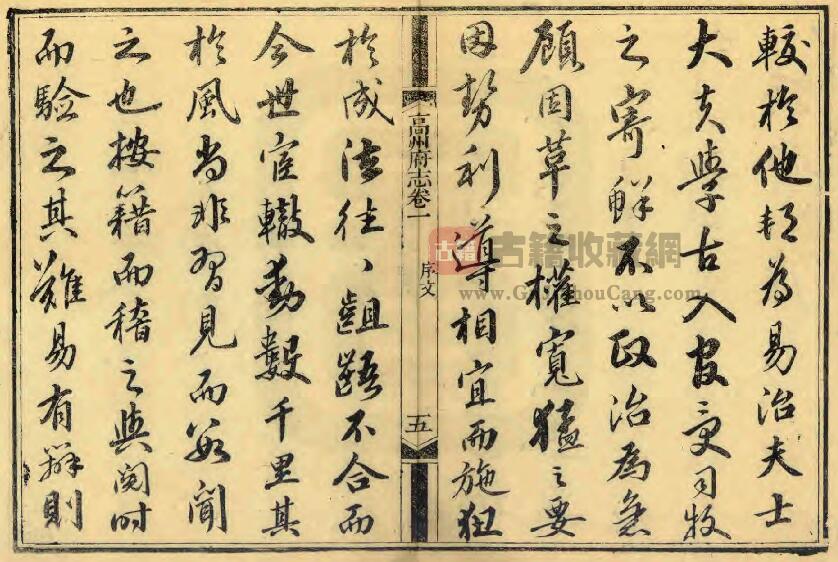 較於他郡為易治夫士
大夫學古入官受司牧
之寄鮮不以政治為急
顧因革之權寬猛之要
因勢利導相宜而施狃
高州府志卷一 序文 五
於成法往〻齟齬不合而
今世宦轍動數千里其
於風尚非習見而聞
之也按籍而稽之與閱時
而驗之其難易有辨則
古籍 古籍收藏網
www.GuJiShouCang.com